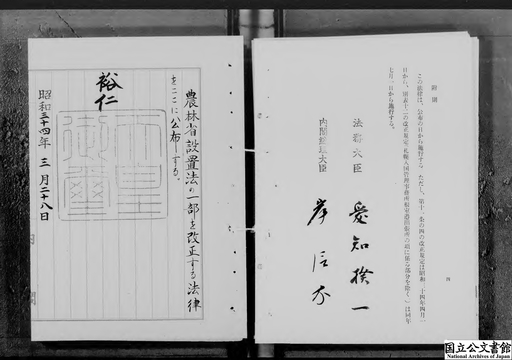 附則
この法律は、公布の日から施行する。ただし、第十一条の四の改正規定は昭和三十四年四月一
七月一日から施行する。
法務大臣 愛知揆一
内閣総理大臣 岸信介
農林省設置法の一部を改正する法律
をここに公布する。
裕仁
天皇御璽
昭和三十四年三月二十八日
内閣
国立公文書館
National Archives of Japan